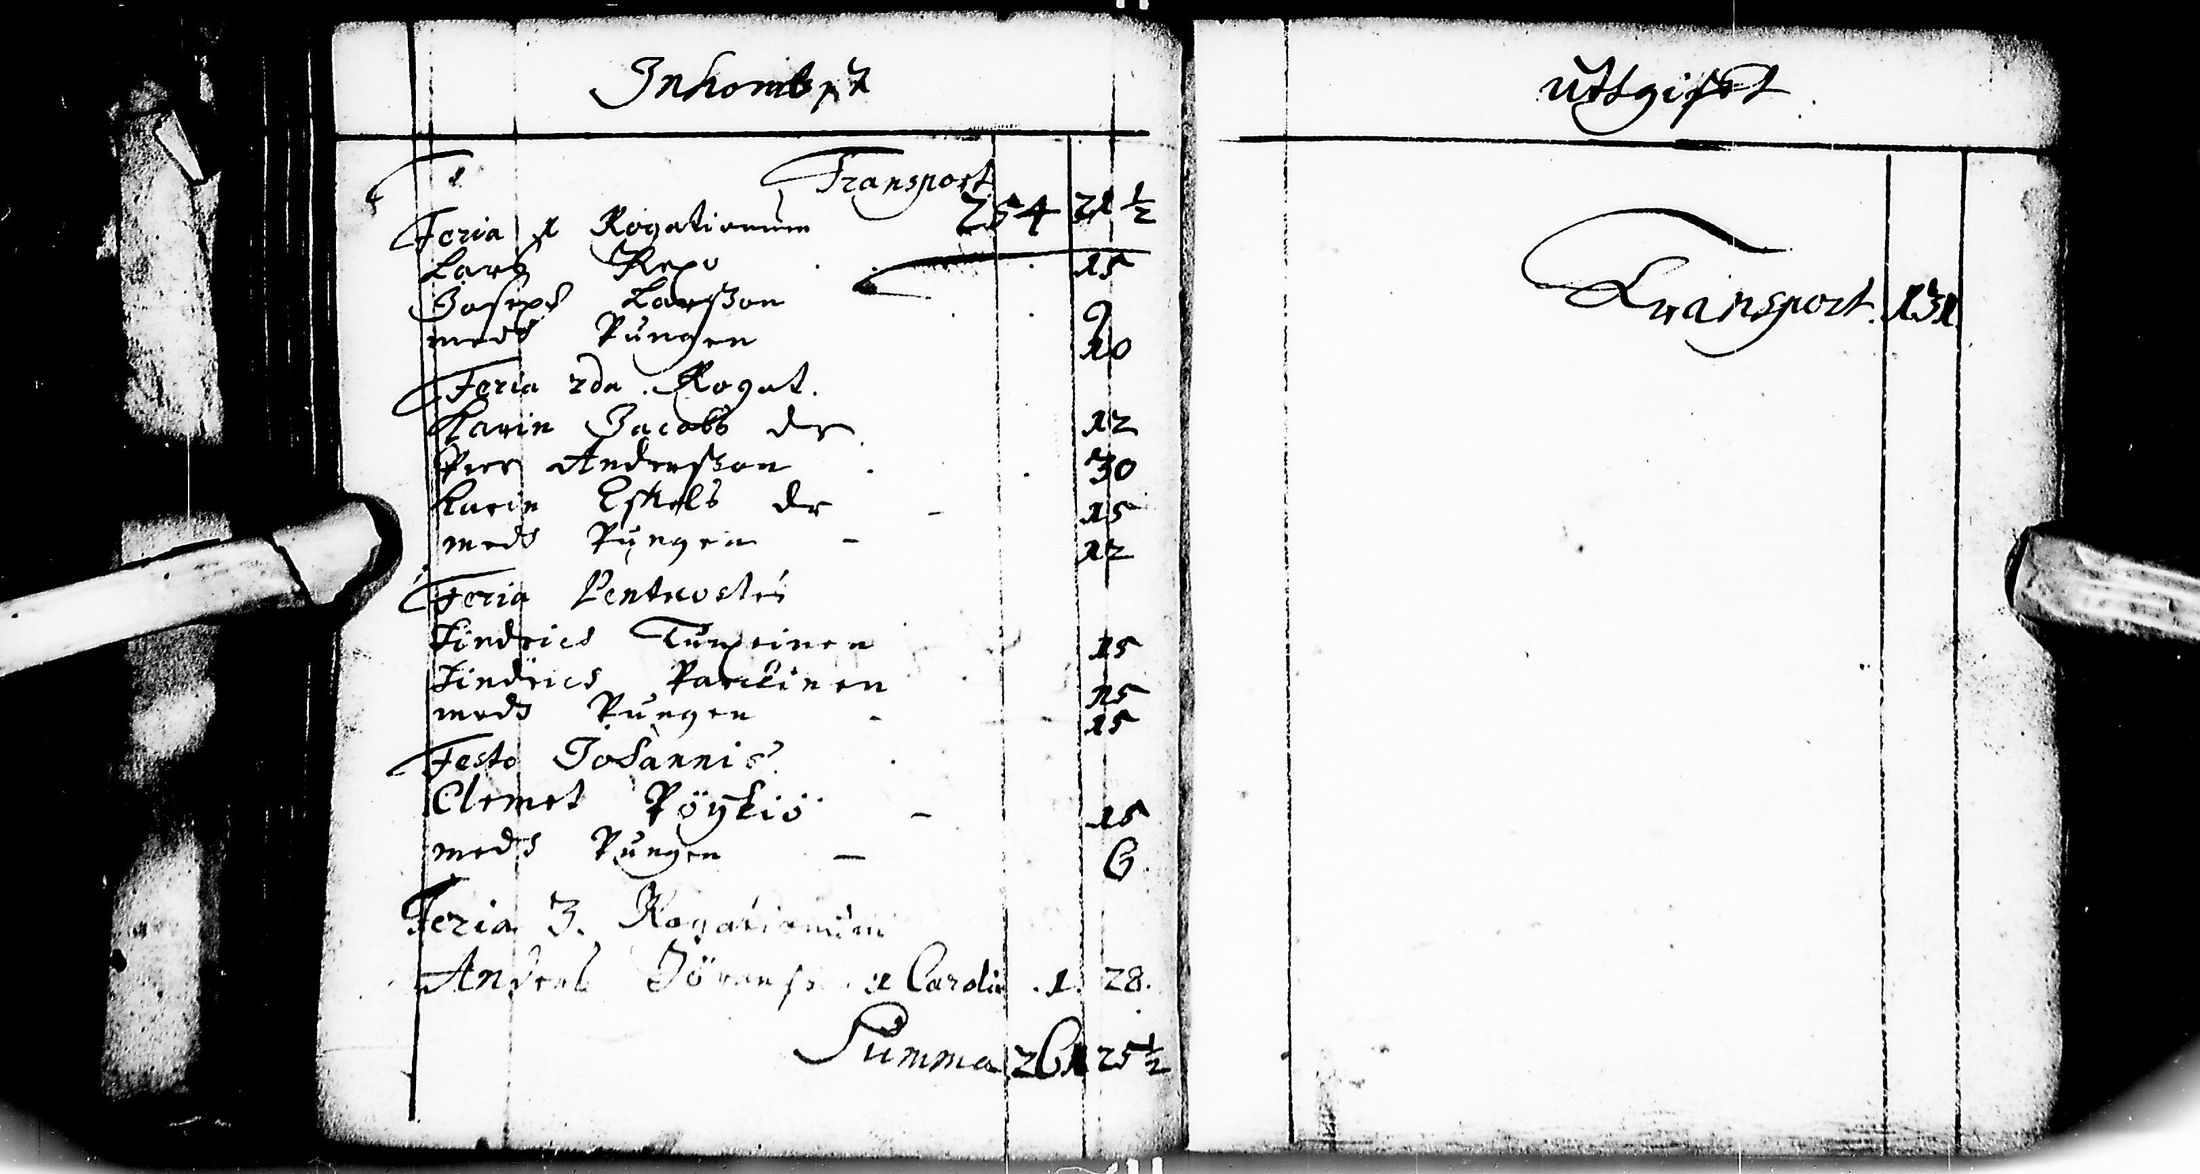 Inkombst
Transport 254 21 ½
Feria 1 Rogationum
Lars Repo 15
Joseph Larsson 9
medh Pungen 10
Feria 2da Rogat.
Karin Jacobs dr 12
Per Andersson 30
Karin Eskels dr - 15
medh Pungen - 12
Feria Pentecostes
Hindrich Turpeinen 15
Hindrich Parckinen 15
medh Pungen - 15
Festo Johannis
Clemet Pöykiö - 15
medh Pungen - 6
Feria 3. Rogationum
Anders Jöransson 1 Carolin .1. 28.
Summa 261 25 ½
Uttgifft
Transport. 131